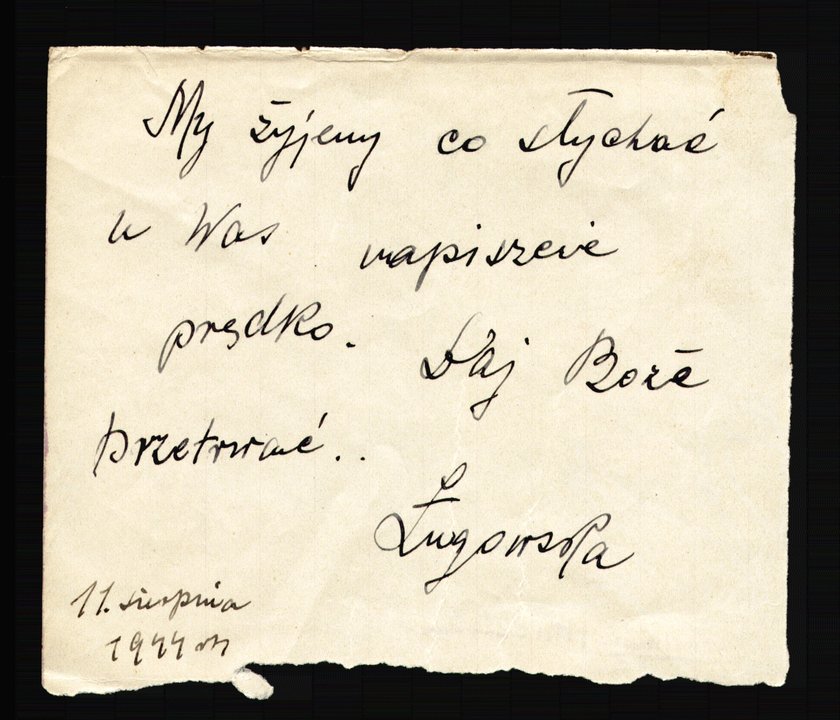 My żyjemy co słychać
u Was napiszcie
prędko. Daj Boże
przetrwać..
Ługowska
11. sierpnia
1944 r.